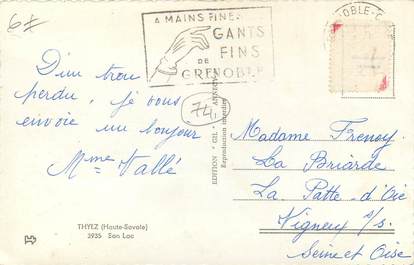 6#
A MAINS FINES
GANTS
FINS
DE
GRENOBLE
NOBLE-G
D'un trou
perdu, je vous
envoie un bonjour
Mme Vallé
74
EDITION "GIL" ANNECY
Reproduction interdite
Madame Frenoy
La Briarde
La Patte-d'Oie
Vigneux s/s.
Seine et Oise
THYEZ (Haute-Savoie)
3935 Son Lac